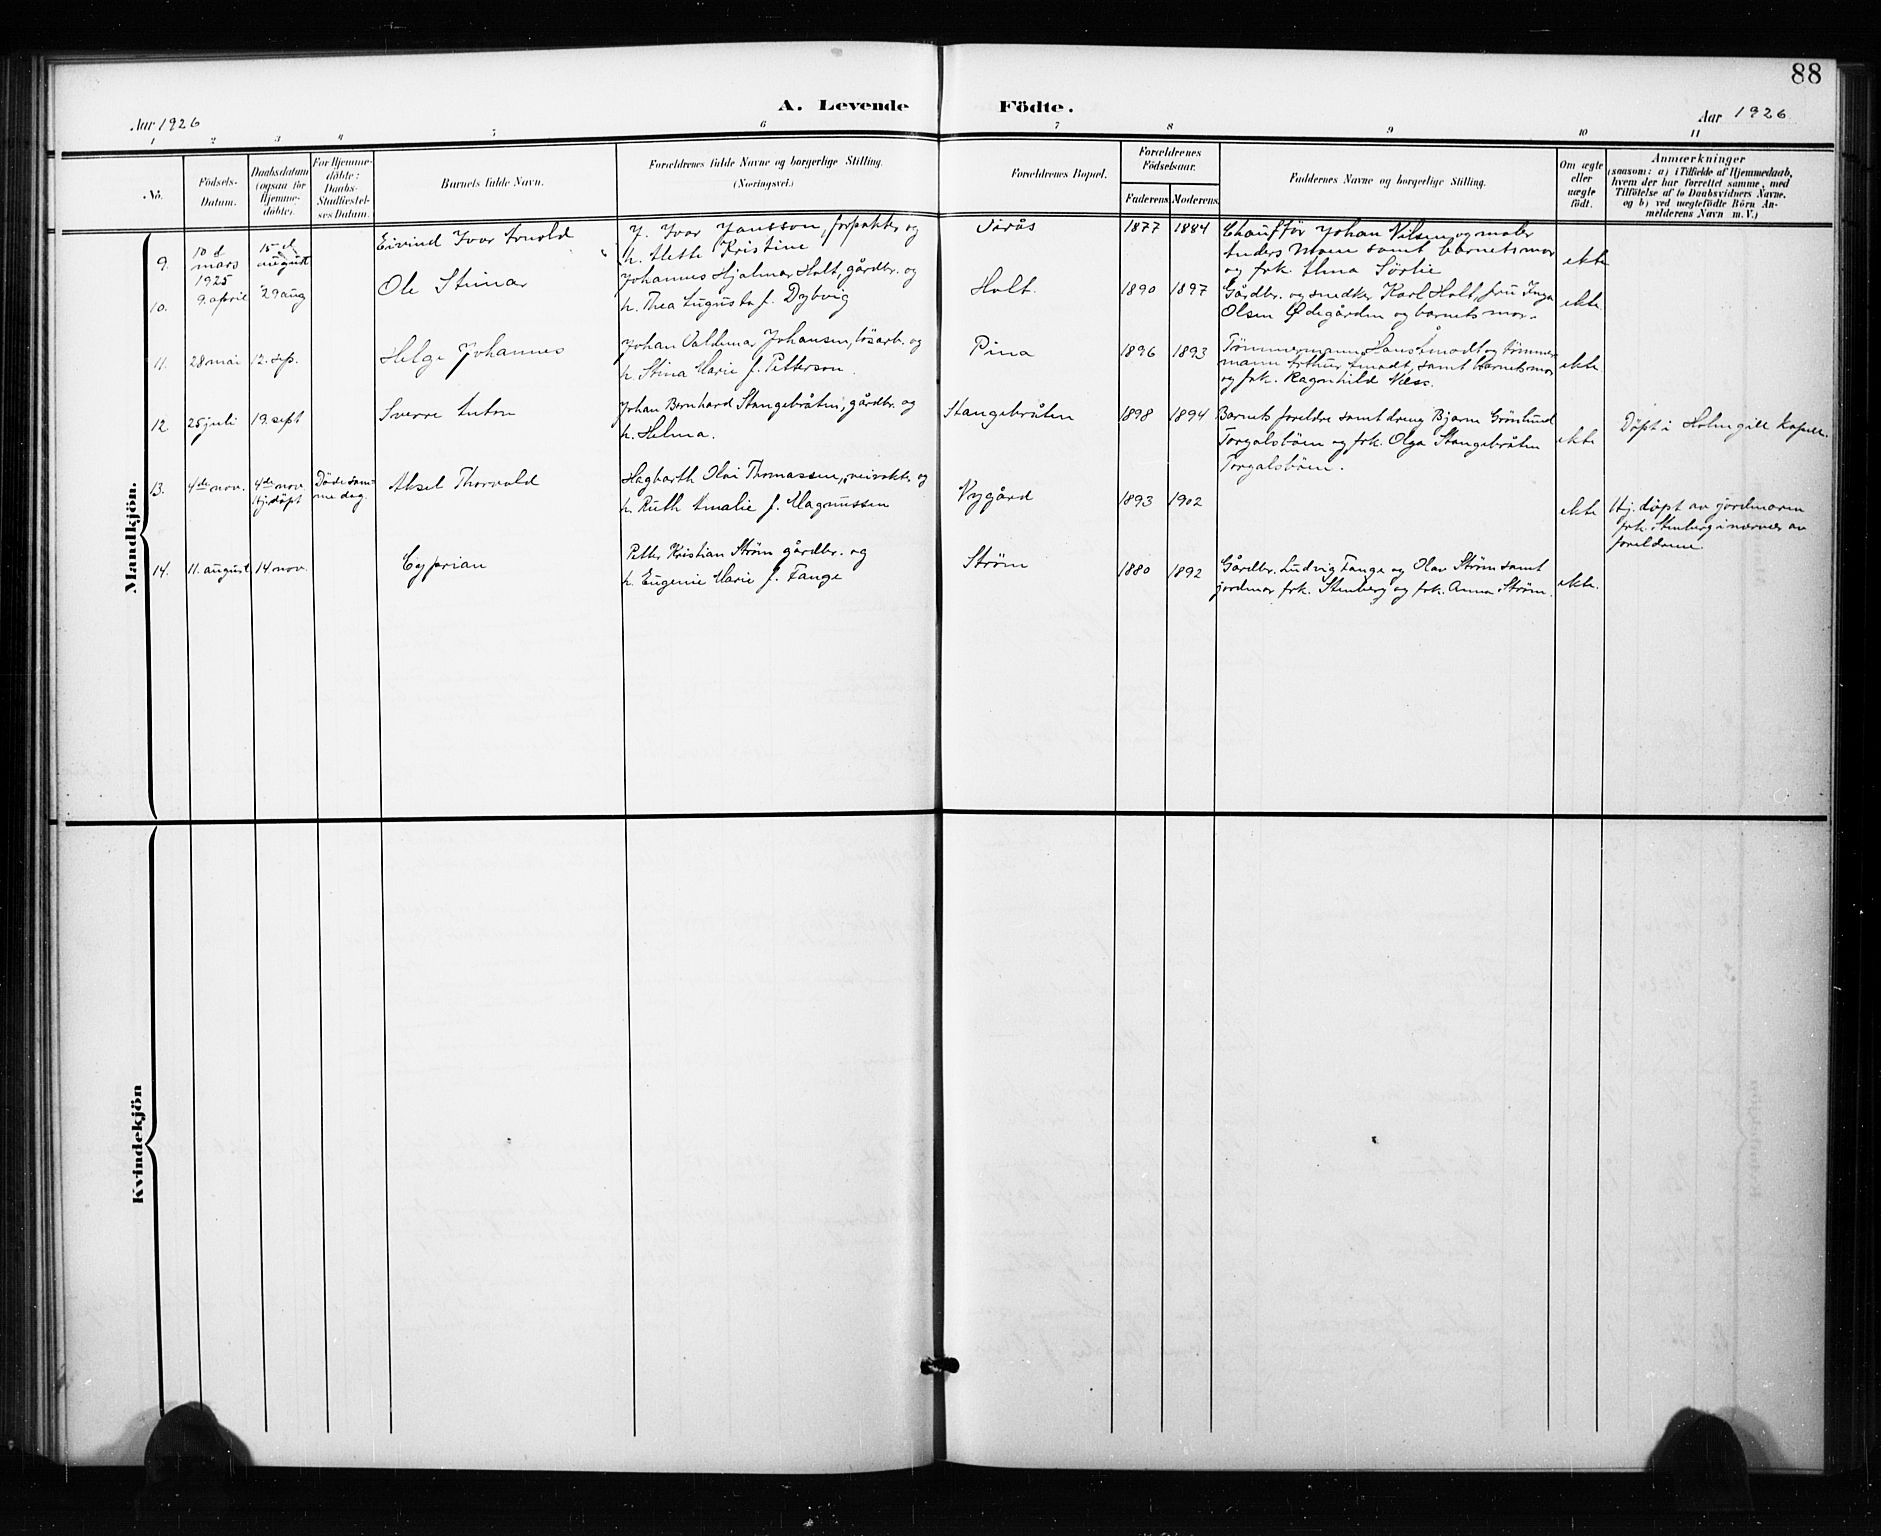 88
A. Levende Födte.
Aar 1926
Aar 1926
1 2 3 4 5 6 7 8 9 10 11
No.
Födsels-
Datum.
Daabsdatum
(ogsaa for
Hjemme-
döbte).
For Hjemme-
döbte:
Daabs-
Stadfæstel-
ses Datum.
Barnets fulde Navn.
Forældrenes fulde Navne og borgerlige Stilling.
(Næringsvei.)
Forældrenes Bopæl.
Forældrenes
Födselsaar.
Faderens. Moderens.
Faddernes Navne og borgerlige Stilling.
Om ægte
eller
uægte
födt.
Anmærkninger
(saasom: a) i Tilfælde af Hjemmedaab,
hvem der har forrettet samme, med
Tilföielse af to Daabsvidners Navne.
og b) ved uægtefödte Börn An-
melderens Navn m. V.)
Mandkjön.
9.
10 d
mars
1925
15 d
august
Eivind Ivar Arnold
J. Ivar Jansson, forpakter, og
h. Kristine
1877 1884
Chauffør Johan Nilsen og maler
Anders Moen samt barnets mor
og frk. Alma Sörlie
ekte
10.
9. april
29 aug
Ole Steinar
Johannes Hjalmar Holt, gårdbr. og
h. Thea Augusta f. Dybvig
Holt.
1890 1897
Gårdbr. og snedker Karl Holt, fru Inga
Olsen Ødegården og barnets mor.
ekte.
11.
28 mai
12. sep.
Helge Johannes
Johan Valdemar Johansen, lösarb. og
h. Stina Marie f. Petterson.
Pina
1896 1893
Tömmermann Hans Åmodt og tömmer-
mann Arthur Åmodt, samt barnets mor
og frk. Ragnhild Næss.
ekte.
12.
25 juli
19. sept
Sverre Anton
Johan Bernhard Stangebråten, gårdbr. og
h. Helma.
Stangebråten
1898 1894
Barnets foreldre samt dreng Bjarne Grönlund
Torgalsböen og frk. Olga Stangebråten
Torgalsböen.
ekte
Döpt i Holmgill kapell.
13.
4de nov.
4de nov.
Hj. döpt
Döde sam-
me dag.
Aksel Thorvald
Hagbarth Olai Thomassen, veivokter og
h. Ruth Amalie f. Magnussen
Nygård
1893 1902
ekte
Hj. döpt av jordmoren
frk. Stenberg i nærvær av
foreldrene.
14.
11. august
14 nov.
Cyprian
Petter Kristian Ström gårdbr. og
h. Eugenie Marie f. Tange
Ström
1880 1892
Gårdbr. Ludvig Tange og Olav Ström samt
jordmor frk. Stenberg og frk. Anna Ström.
ekte.
Kvindekjön